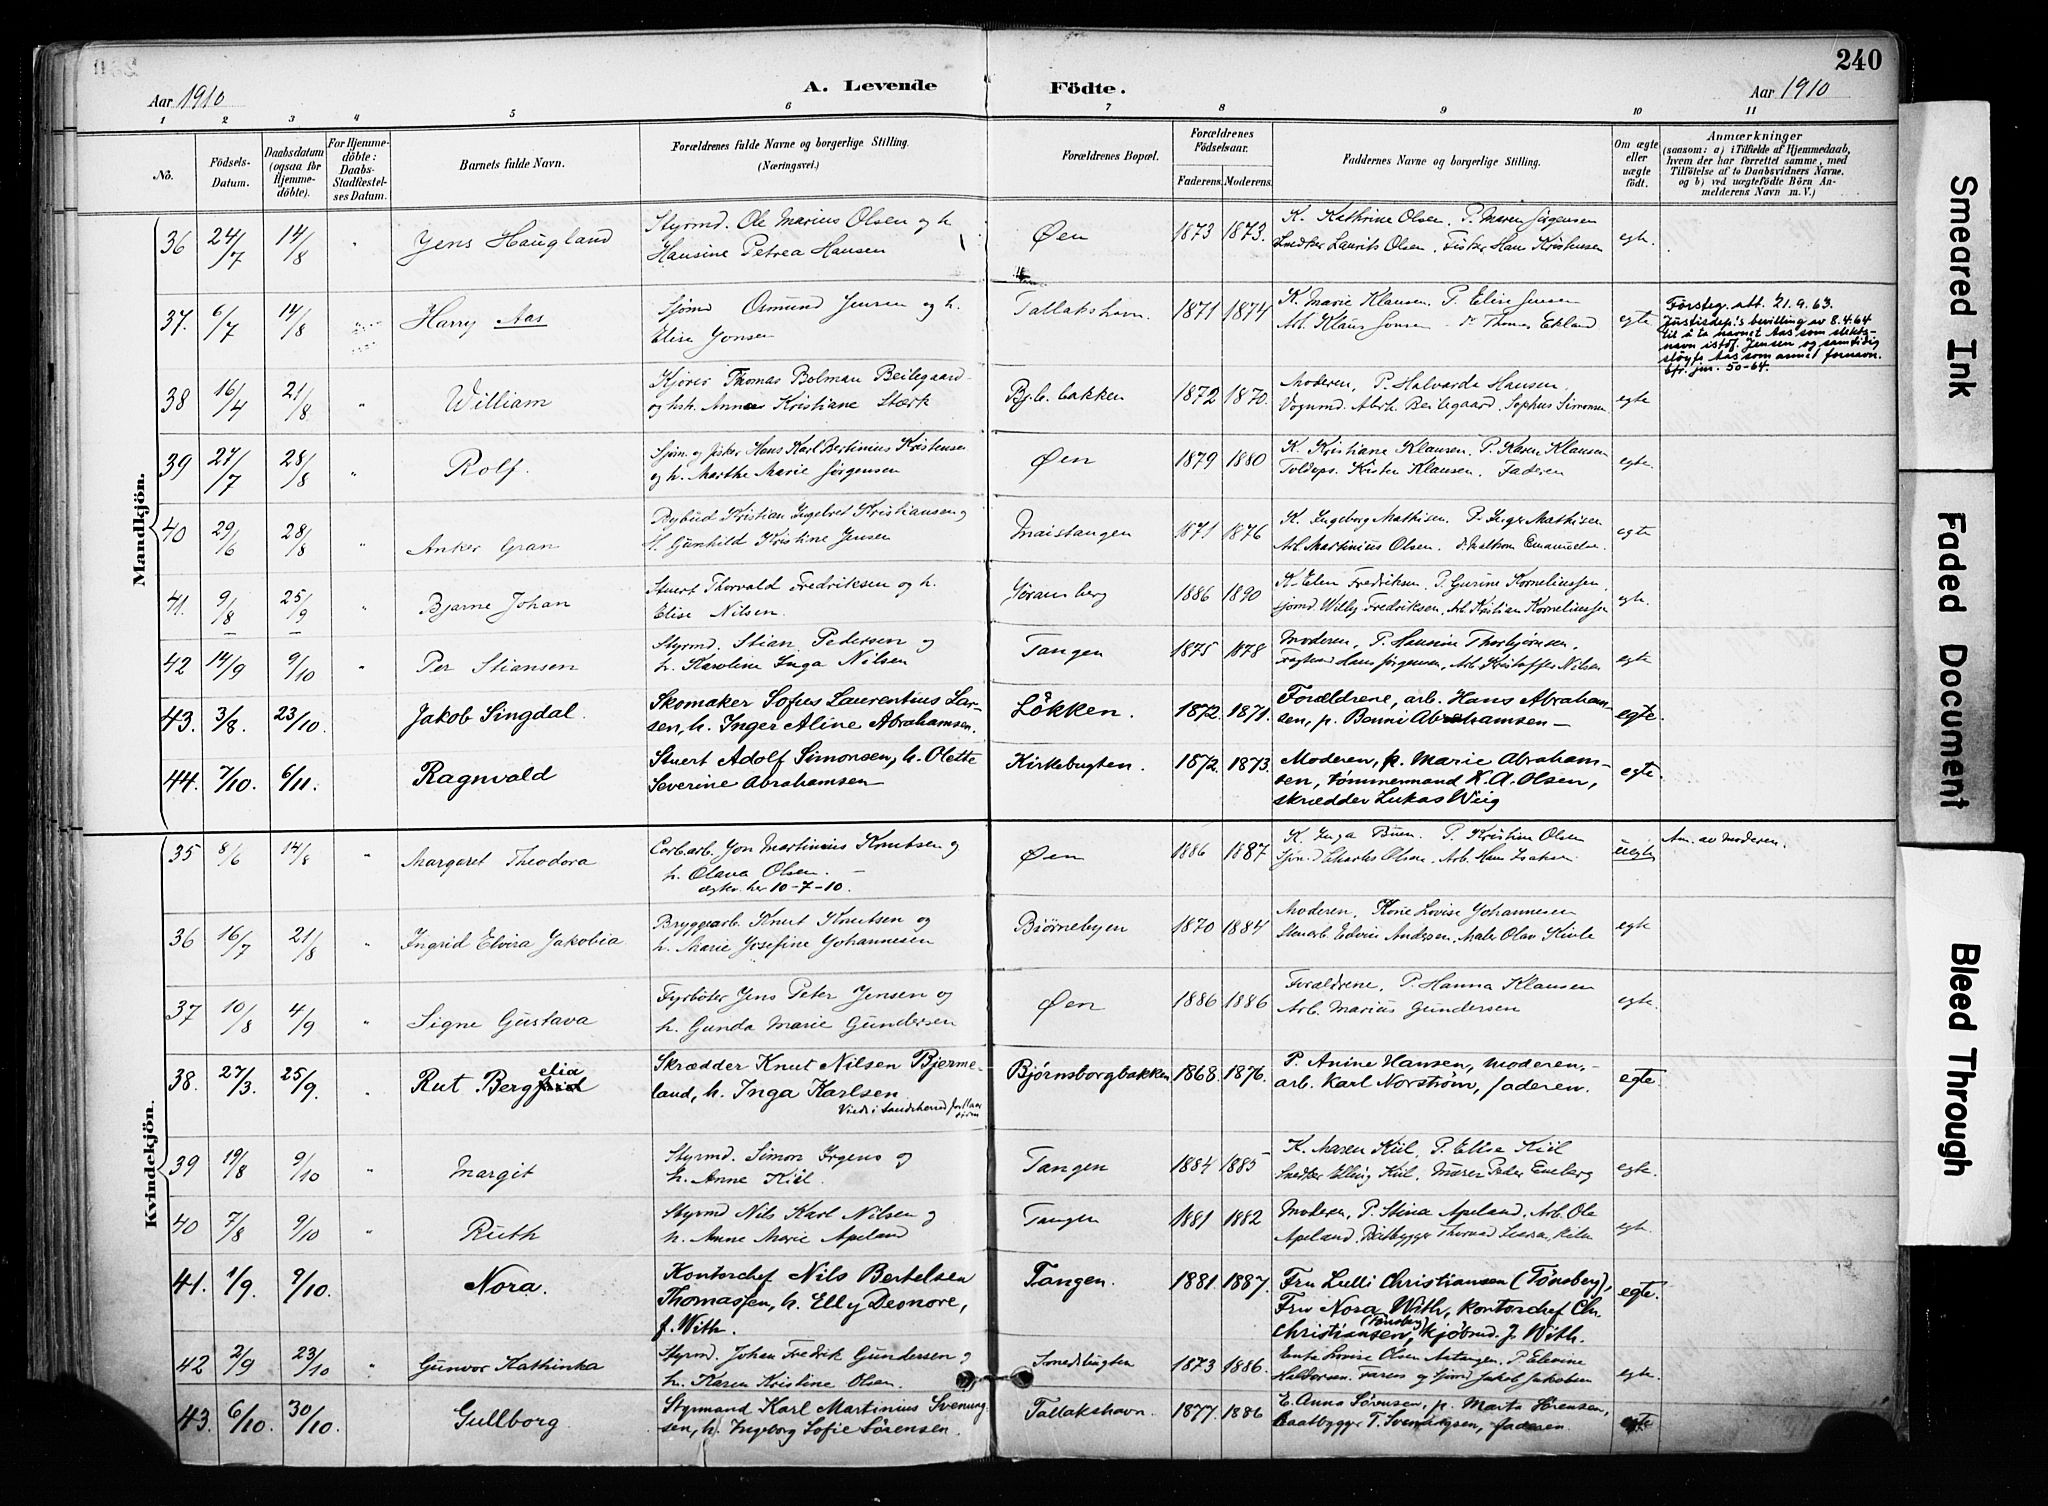 240
Aar 1910
A. Levende
Födte.
Aar 1910
1 2 3 4 5 6 7 8 9 10 11
No.
Födsels-
Datum.
Daabsdatum
(ogsaa for
Hjemme-
döbte).
For Hjemme-
döbte:
Daabs-
Stadfæstel-
ses Datum.
Barnets fulde Navn.
Forældrenes fulde Navne og borgerlige Stilling.
(Næringsvei.)
Forældrenes Bopæl.
Forældrenes
Födselsaar.
Faderens. Moderens.
Faddernes Navne og borgerlige Stilling.
Om ægte
eller
uægte
födt.
Anmærkninger
(saasom: a) i Tilfælde af Hjemmedaab,
hvem der har forrettet samme, med
Tilföielse af to Daabsvidners Navne,
og b) ved uægtefödte Börn An-
melderens Navn m. V.)
Mandkjön.
36 24/7 14/8 " Jens Haugland
Styrmd. Ole Marius Olsen og h.
Hansine Petrea Hansen
Øen 1873 1873.
K. Kathrine Olsen. P. Maren Jörgensen
Snedker Laurits Olsen. Fisker Hans Kristensen
egt.
37. 6/7 14/8 Harry Aas
Sjömd Osmund Jensen og h.
Elise Jonsen
Tallakshavn. 1871 1874
K. Marie Klausen. P. Elise Jensen
Arb. Klaus Jonsen Thomas Ekland
egte
Første g. att. 21.9.63.
Justisdep.'s bevilling av 8.4.64
til å ta navnet Aas som slekts-
navn istdf. Jensen og samtidig
sløyfe Aas som annet fornavn.
Cfr. jnr. 50-64.
38 16/4 21/8 " William
Kjörer Thomas Bolman Beilegaard
og hst. Anna Kristiane Stærk
Bj.b. bakken 1872 1870.
Moderen, P. Halvarda Hansen.
Vognmd. Abrh. Beilegaard. Sophus Simonsen
egte
39 27/7 28/8 " Rolf.
Sjöm. og fisker Hans Karl Bertinius Kristensen
og h. Marthe Marie Jörgensen
Øen 1879 1880
K. Kristiane Klausen. P. Karen Klausen
Toldops. Krister Klausen. Faderen
egte.
40 29/6 28/8 " Anker Gran
Rybud Kristian Ingebret Kristiansen og
H. Gunhild Kristine Jensen
1871 1876
K. Ingeborg Mathisen. P. Inger Mathisen
Arb. Martinius Olsen.
egte
41. 9/8 25/9 " Bjarne Johan
Stuert Thorvald Fredriksen og h.
Elise Nilsen.
Jöransberg 1886 1890
K. Elen Fredriksen, P. Gurine Korneliussen,
sjömd Willy Fredriksen, Arb. Kristian Korneliussen
egt.
42 14/9 9/10 " Per Stiansen
Styrmd. Stian Pedersen og
h. Karoline Inga Nilsen
Tangen 1875 1878
Moderen, P. Hansine Thorbjörnsen,
Lars Jörgensen, Arb. Kristoffer Nilsen
egte
43. 3/8. 23/10. Jakob Singdal.
Skomaker Sofus Laurentius Lar-
sen, h. Inger Aline Abrahamsen.
Løkken. 1872. 1871.
Forældrene, arb. Hans Abraham-
sen, p. Banni Abrahamsen –
egte.
44. 7/10. 6/11. Ragnvald
Stuert Adolf Simonsen, h. Olette
Severine Abrahamsen
Kirkebugten. 1872. 1873.
Moderen, p. Marie Abraham-
sen, tømmermand K. A. Olsen,
skrædder Lukas Wiig
egte.
Kvindekjön.
35 8/6 14/8 " Margaret Theodora
Corb.arb. Jon Martinius Knutsen og
h. Olava Olsen. –
ægtev. her 10-7-10.
Øen 1886 1887
K. Inga Buen. P. Kristine Olsen
Sjömd Charles Olsen. Arb. Hans Isaksen
uegte
An. av moderen.
36 16/7 21/8 " Ingrid Elvira Jakobia
Bryggearb. Knut Knutsen og
h. Marie Josefine Johannesen
Bjørnebyen 1870 1884
Moderen, Kone Lovise Johannesen
Stenarb. Edvin Andersen, Maler Olav Kivle
egte
37 10/8 4/9 " Signe Gustava
Fyrböter Jens Peter Jensen og
h. Gunda Marie Gundersen
Øen 1886 1886
Forældrene, P. Hanna Klausen
Arb. Marius Gundersen
egte.
38. 27/3. 25/9. " Rut Bergelia
Skrædder Knut Nilsen Bjerme-
land, h. Inga Karlsen.
Viede i Sandeherred
Bjørnsborgbakken 1868. 1876.
P. Anine Hansen, moderen, –
arb. Karl Norstrøm, faderen.
egte
39 19/8 9/10 " Margit
Styrmd. Simon Irgens og
h. Anne Kiil.
Tangen 1884 1885
K. Maren Kiil, P. Elise Kiil
Snedker Elling Kiil, Murer Peder Eneberg
egte.
40 7/8 9/10 " Ruth
Styrmd Nils Karl Nilsen og
h. Anne Marie Apeland
Tangen 1881 1882
Moderen, P. Stina Apeland, Arb. Ole
Apeland,
egt.
41. 1/9. 9/10. Nora.
Kontorchef Nils Bertelsen
Thomassen, h. Elly Deonore,
f. With.
Tangen. 1881. 1887.
Fru Lulli Christiansen (Tønsberg),
Fru Nora With, kontorchef Chr.
Christiansen, (Tønsberg) kjøbmd. J. With.
egte.
42 2/9 23/10 " Gunvor Kathinka
Styrmd. Johan Fredrik Gundersen og
h. Karen Kristine Olsen.
Smedsbugten 1873 1886.
Enke Lovise Olsen Aatangen. P. Elevine
Haldorsen. Faren og Sjömd Jakob Jakobsen
egte.
43. 6/10. 30/10. Gullborg
Styrmand Karl Martinius Svenung-
sen, h. Ingeborg Sofie Sørensen.
Tallakshavn. 1877. 1886
E. Anna Sørensen, p. Marta Sørensen,
Baatbygger T. Svenungsen, faderen.
egte
Smeared Ink
Faded Document
Bleed Through